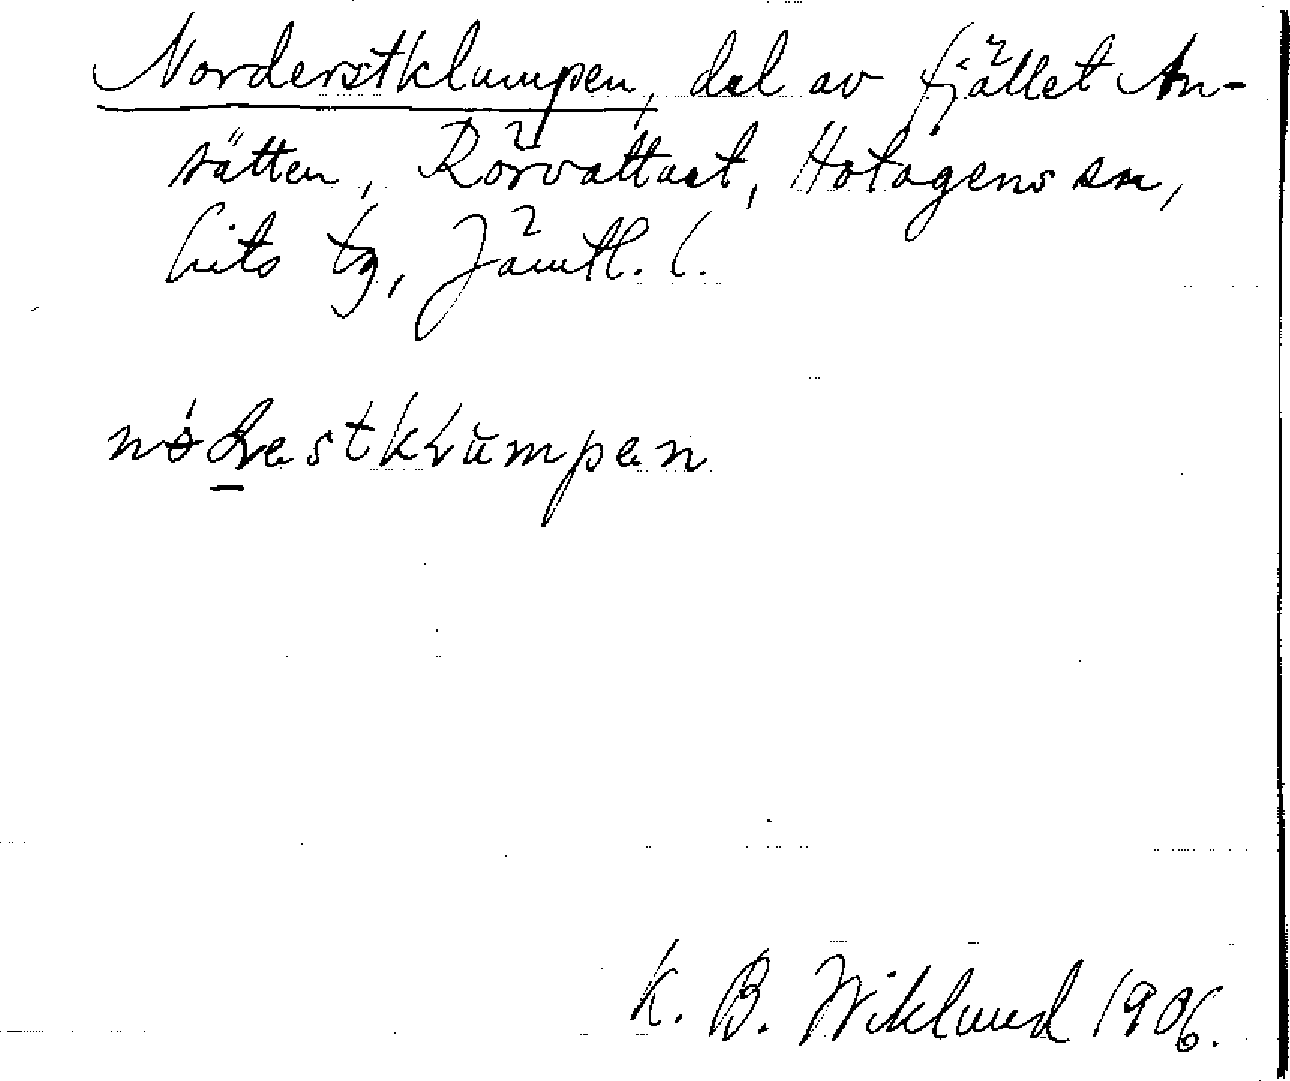 Norderstklumpen, del av fjället An-
sätten, Rörvattnet, Hotagens sn,
Lits tg, Jämtl. l.
K. B. Wiklund 1906.